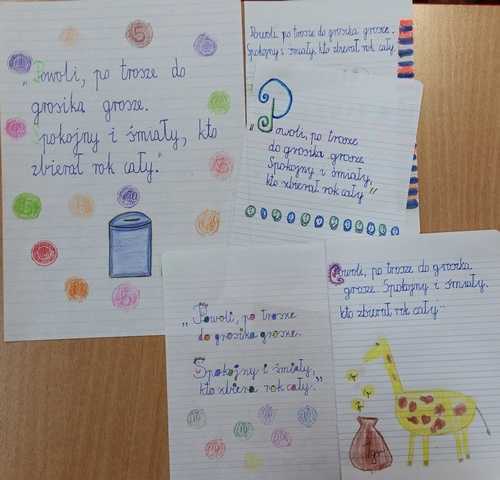 „Powoli, po trosze do
grosika grosze.
Spokojny i śmiały, kto
zbierał rok cały."
Powoli, po trosze do grosika grosze.
Spokojny i śmiały, kto zbierał rok cały.
„Powoli, po trosze
do grosika grosze
Spokojny i śmiały,
kto zbierał rok cały"
„Powoli, po trosze
do grosika grosze.
Spokojny i śmiały,
kto zbiera rok cały."
Powoli, po trosze do grosika
grosze. Spokojny i śmiały.
kto zbierał rok cały
5
5
5